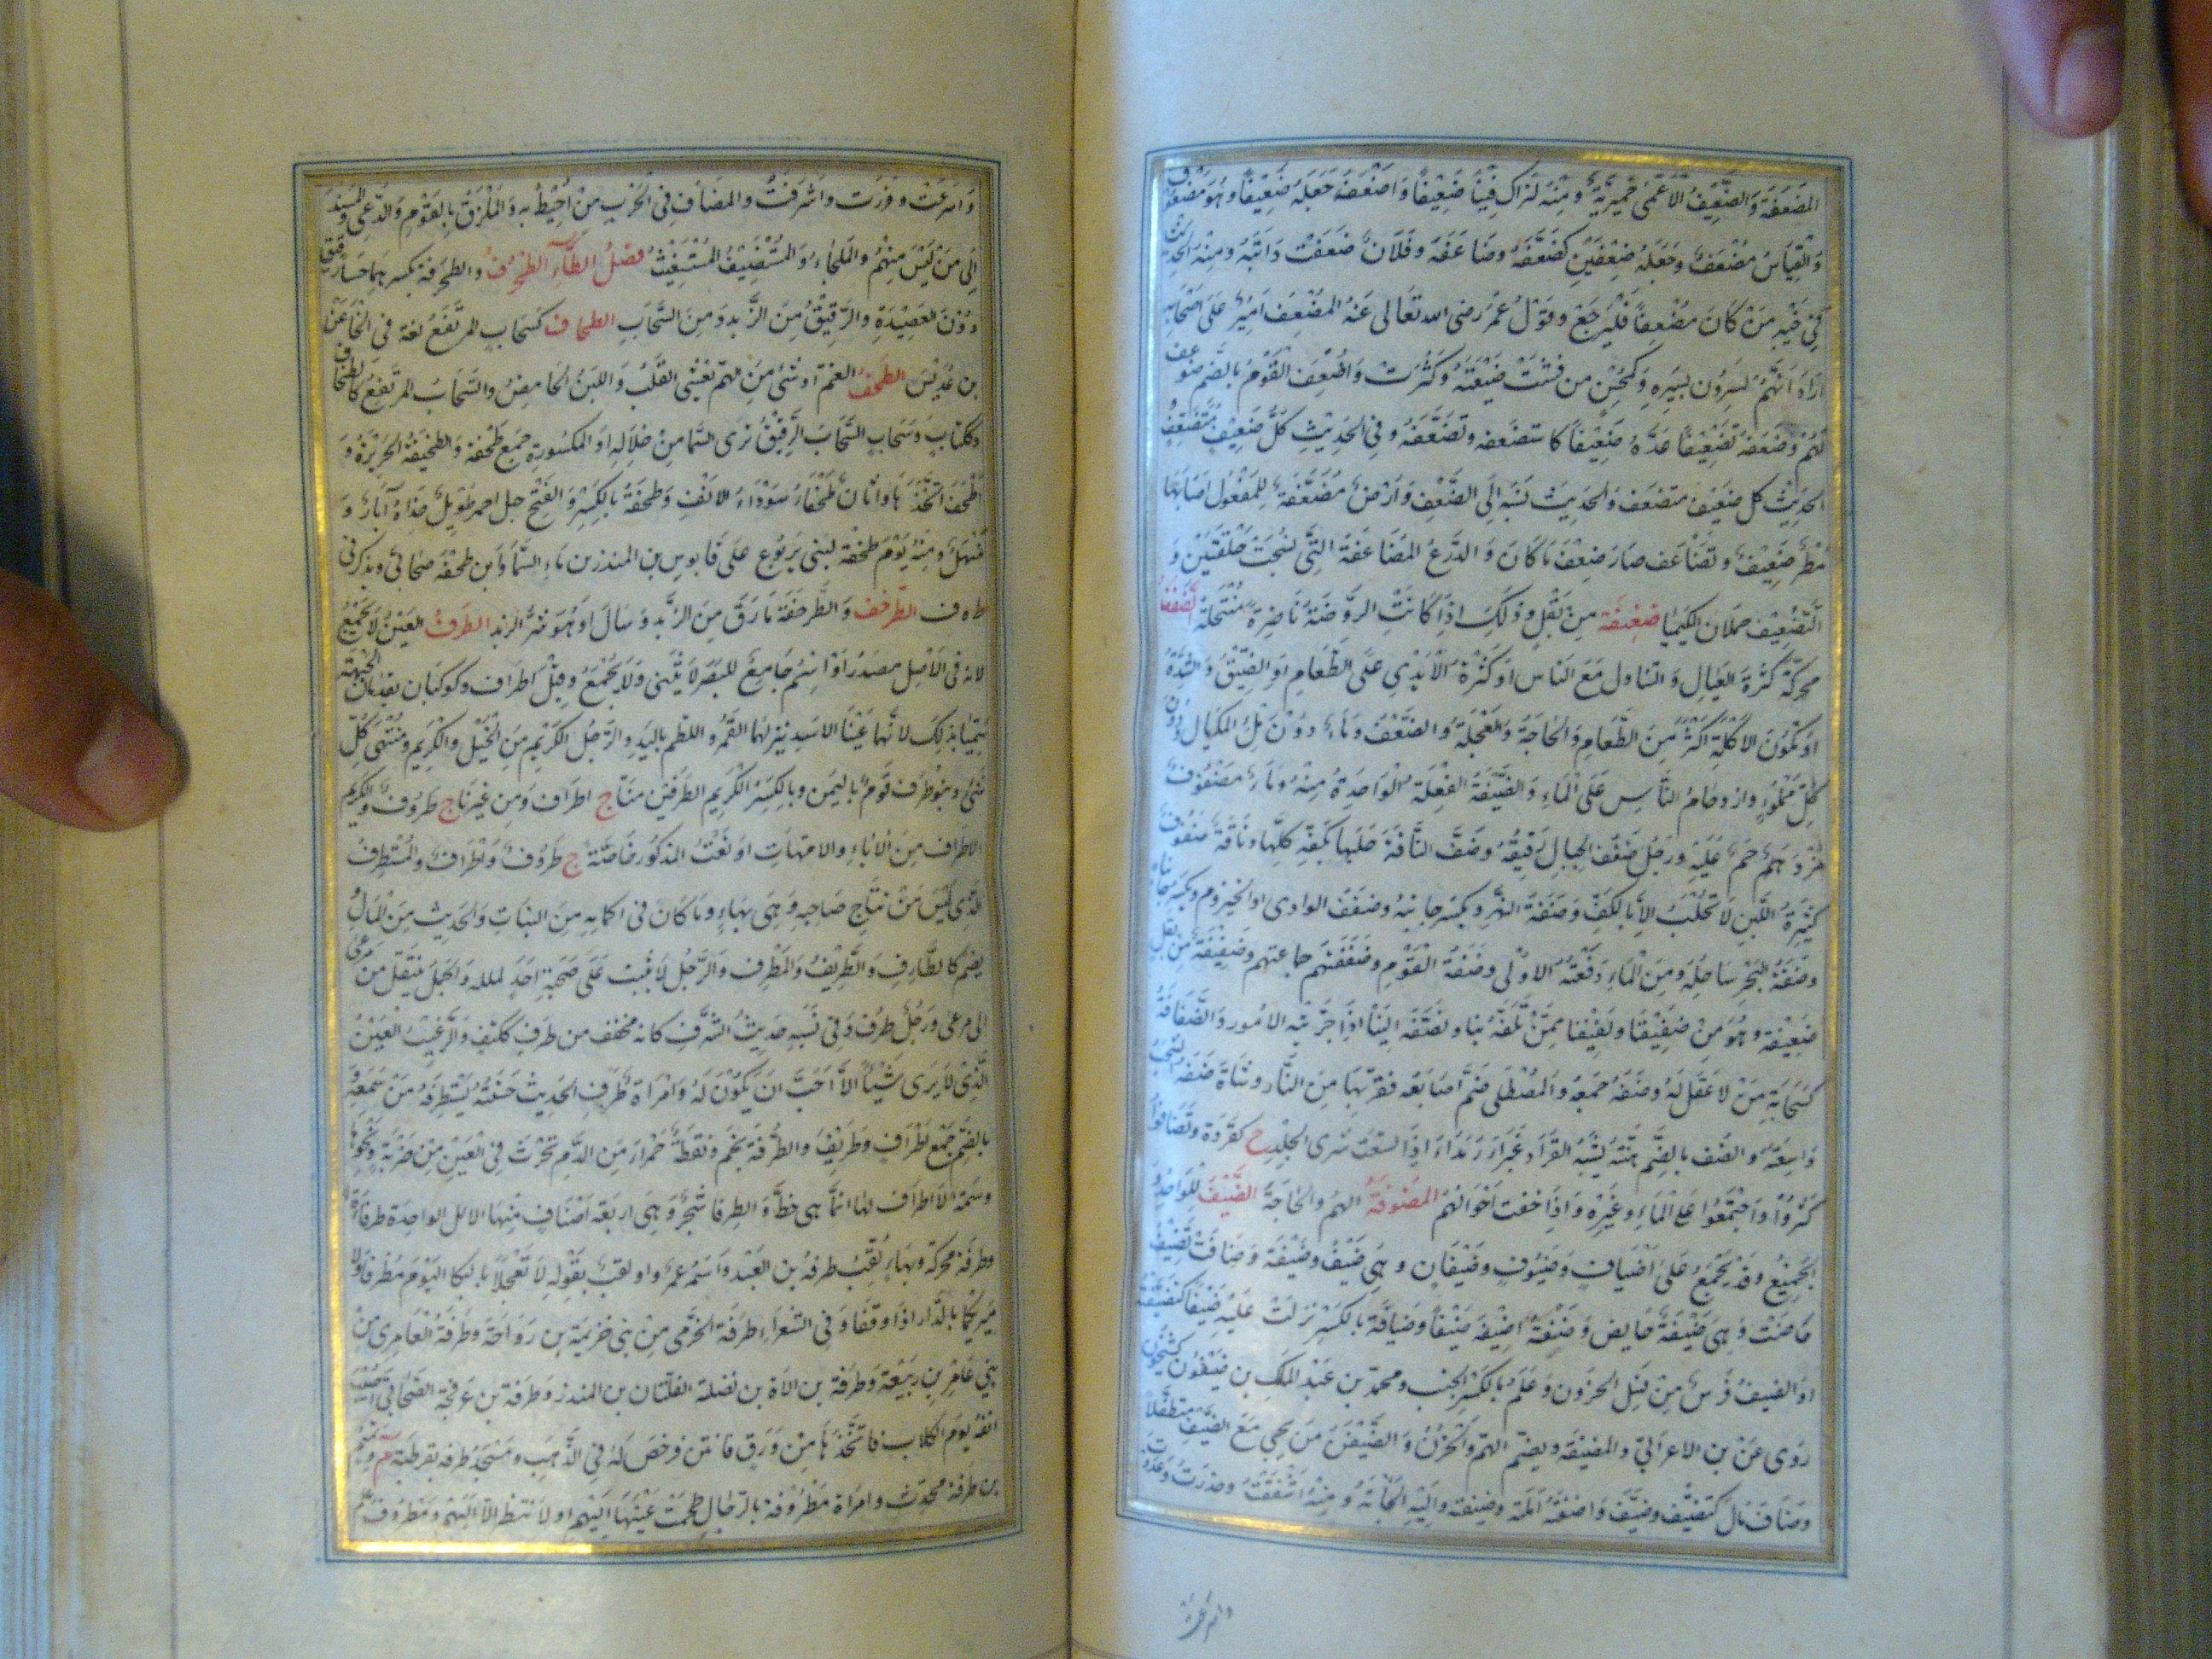 المضعفة والضعيف الاعمى حميرية ومنه لنراك فينا ضعيفا واضعفه جعله ضعيفا وهو مضعوف
والقياس مضعف وجعله ضعفين كضعفه وضاعفه وفلان ضعفت دابته ومنه الحديث
في خيبر من كان مضعفا فليرجع وقول عمر رضى الله تعالى عنه المضعف امير على اصحابه
اراد انهم يسيرون بسيره وكمحسن من فشت ضيعته وكثرت واضعف القوم بالضم ضوعف
لهم وضعفه تضعيفا عده ضعيفا كاستضعفه وتضعفه وفي الحديث كل ضعيف متضعف
الحديث كل ضعيف متضعف والحديث نسبه الى الضعف وارض مضعفة للمفعول اصابها
مطر ضعيف وتضاعف صار ضعف ما كان والدرع المضاعفة التى نسجت حلقتين و
التضعيف حملان الكيميا ضغيفة من بقل وذلك اذا كانت الروضة ناضرة متخيلة الضفف
محركة كثرة العيال والتناول مع الناس او كثرة الايدي على الطعام او الضيق والشدة
او تكون الاكلة اكثر من الطعام والحاجة والعجلة والضعف وماء دون ملء المكيال ودون
كل مملوء وازدحام الناس على الماء والضفة الفعلة الواحدة منه وماء مضفوف
حم عليه ورجل ضفف الحال رقيقه وضف الناقة حلبها بكفه كلها وناقة ضفوف
كثيرة اللبن لا تحلب الا بالكف وضفة النهر ويكسر جانبه وضفف الوادى او الحيزوم ويكسر جانباه
وضفة البحر ساحله ومن الماء دفعته الاولى وضفة القوم وضففتهم جماعتهم وضفيفة من بقل
ضغيفة وهو من ضفيفنا ولفيفنا ممن نلفه بنا ونضفه الينا اذا حزبته الامور والضفافة
كسحابة من لا عقل له وضفه جمعه والمصطلى ضم اصابعه فقربها من النار وشاة ضفة الشخب
واسعته والضف بالضم هنية يشبه القراد غبراء رمداء اذا لسعت شرى الجلد ج كقردة وتضافوا
كثروا واجتمعوا على الماء وغيره واذا خفت احوالهم المضوفة الهم والحاجة الضيف للواحد و
الجميع وقد يجمع على اضياف وضيوف وضيفان وهى ضيف وضيفة وضافت تضيف
حاضت وهى ضيفة حايض وضفته اضيفه ضيفا وضيافة بالكسر نزلت عليه ضيفا كتضيفته
او الضيف فرس من نسل الحرون وعلم بالكسر الجنب ومحمد بن عبد الملك بن ضيفون كشيخون
روى عن بن الاعرابي والمضيفة ويضم الهم والحزن والضيفن من يجي مع الضيف متطفلا
وضاف مال كتضيف وضيف واضفته املته وضيفته واليه الجاته ومنه اشفقت وحذرت وعدوت
واسرعت
واسرعت وفررت واشرفت والمضاف في الحرب من احيط به والملزق بالقوم والدعى والمسند
الى من ليس منهم والملجاء والمستضيف المستغيث فصل الطاء الطحرف والطحرفة بكسرهما حساء رقيق
دون العصيدة والرقيق من الزبد ومن السحاب الطحاف كسحاب المرتفع لغة في الخا عن
بن عديس الطخف الغم او شئ من الهم يغشى القلب واللبن الحامض والسحاب المرتفع كالطخاف
وككتاب وسحاب السحاب الرقيق ترى السما من خلاله او المكسورة جمع طخفة والطخيفة الخزيرة و
اطخف اتخذها واتان طخفاء سوداء الانف وطخفة بالكسر والفتح جبل احمر طويل حذاه آبار و
منهل ومنه يوم طخفة لبنى يربوع على قابوس بن المنذر بن ماء السماء وبن طخفة صحابي ويذكر في
ط ه ف الطرخف والطرخفة ما رق من الزبد وسال او هو شر الزبد الطرف العين لا يجمع
لانه في الاصل مصدر او اسم جامع للبصر لا يثنى ولا يجمع وقيل اطراف وكوكبان يقدمان الجبهة
سميا بذلك لانهما عينا الاسد ينزلهما القمر واللطم باليد والرجل الكريم من الخيل والكريم ومنتهى كل
شئ وبنو طرف قوم باليمن وبالكسر الكريم الطرفين منا ج اطراف ومن غيرنا ج طروف والكريم
الاطراف من الاباء والامهات او نعت الذكور خاصة ج طروف واطراف والمستطرف
الذى ليس من نتاج صاحبه وهى بهاء وما كان في اكمامه من النبات والحديث من المال
يضم كالطارف والطريف والمطرف والرجل لا يثبت على صحبة احد لملله والجمل ينتقل من مرعى
الى مرعى ورجل طرف في نسبه حديث الشرف كانه مخفف من طرف ككتف والرغيب العين
الذى لا يرى شيئا الا احب ان يكون له وامراة طرف الحديث حسنته يستطرفه من سمعه و
بالضم جمع طراف وطريف والطرفة نجم ونقطة حمراء من الدم تحدث في العين من ضربة ونحوها
وسمة لا اطراف لها انما هى خط والطرفا شجر وهى اربعة اصناف منها الاثل الواحدة طرفاءة
وطرفة محركة وبها لقب طرفة بن العبد واسمه عمر واو لقب بقوله لا تعجلا بالبكا اليوم مطرفا ولا
اميريكما بالدار اذا وقفا وفي الشعراء طرفة الخزمى من بنى خزيمة بن رواحة وطرفة العامرى من
بني عامر بن ربيعة وطرفة بن الاة بن نضلة الفلتان بن المنذر وطرفة بن عرفجة الصحابي اصيب
انفه يوم الكلاب فاتخذها من ورق فانتن فرخص له في الذهب ومسجد طرفة بقرطبة م وتميم
بن طرفة محدث وامراة مطروفة بالرجال طمحت عينها اليهم او لا تنظر الا اليهم ومطروف علم